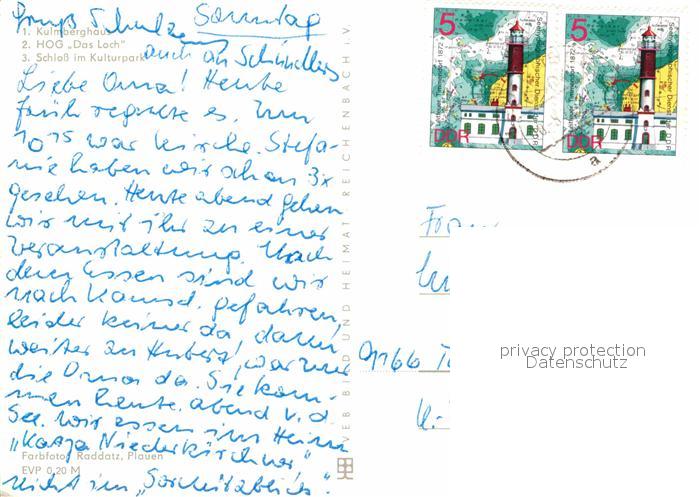 Gruß Schulze Sonntag
auch an Schindlers
1. Kulmberghaus
2. HOG „Das Loch"
3. Schloß im Kulturpark
Liebe Oma! Heute
früh regnete es. Um
10 15 war Kirche. Stefa-
nie haben wir schon 3x
gesehen. Heute abend gehen
wir mit ihr zu einer
Veranstaltung. Nach
dem Essen sind wir
nach gefahren,
leider keiner da, dann
weiter zu Hubert, war nur
die Oma da. Sie kom-
men heute abend v. d.
See. Wir essen im Heim
„Katja Niederkirchner"
nicht im
Farbfoto: Raddatz, Plauen
EVP 0,20 M
VEB BILD UND HEIMAT REICHENBACH i.V.
5
DDR
5
DDR
a
9166
privacy protection
Datenschutz